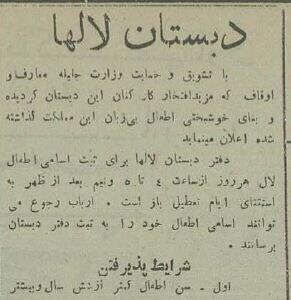 دبستان لالها
با تشویق و حمایت وزارت جلیله معارف و
اوقاف که مزید افتخار کارکنان این دبستان گردیده
و بنای خوشبختی اطفال بی‌زبان این مملکت گذاشته
شده اعلان مینماید
دفتر دبستان لالها برای ثبت اسامی اطفال
لال هرروز از ساعت ٤ تا ٥ ونیم بعد از ظهر به
استثنای ایام تعطیل باز است . ارباب رجوع می
توانند اسامی اطفال خود را به ثبت دفتر دبستان
برسانند .
شرایط پذیرفتن
اول - سن اطفال کمتر از شش سال و بیشتر